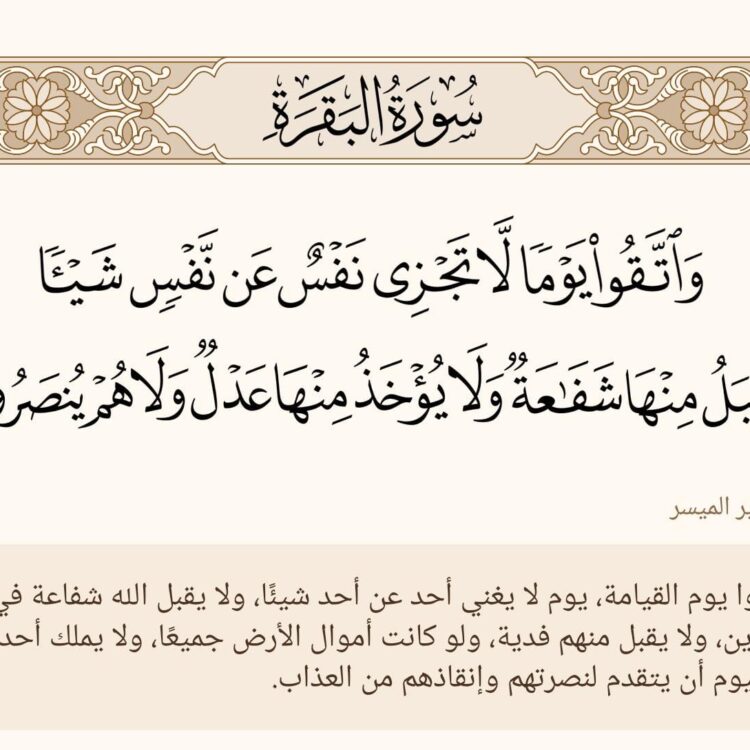 سُورَةُ الْبَقَرَةِ
وَٱتَّقُوا۟ يَوْمًا لَّا تَجْزِى نَفْسٌ عَن نَّفْسٍ شَيْـًٔا
مِنْهَا شَفَـٰعَةٌ وَلَا يُؤْخَذُ مِنْهَا عَدْلٌ وَلَا هُمْ
الميسر
يوم القيامة، يوم لا يغني أحد عن أحد شيئًا، ولا يقبل الله شفاعة في
ولا يقبل منهم فدية، ولو كانت أموال الأرض جميعًا، ولا يملك أحد
أن يتقدم لنصرتهم وإنقاذهم من العذاب.